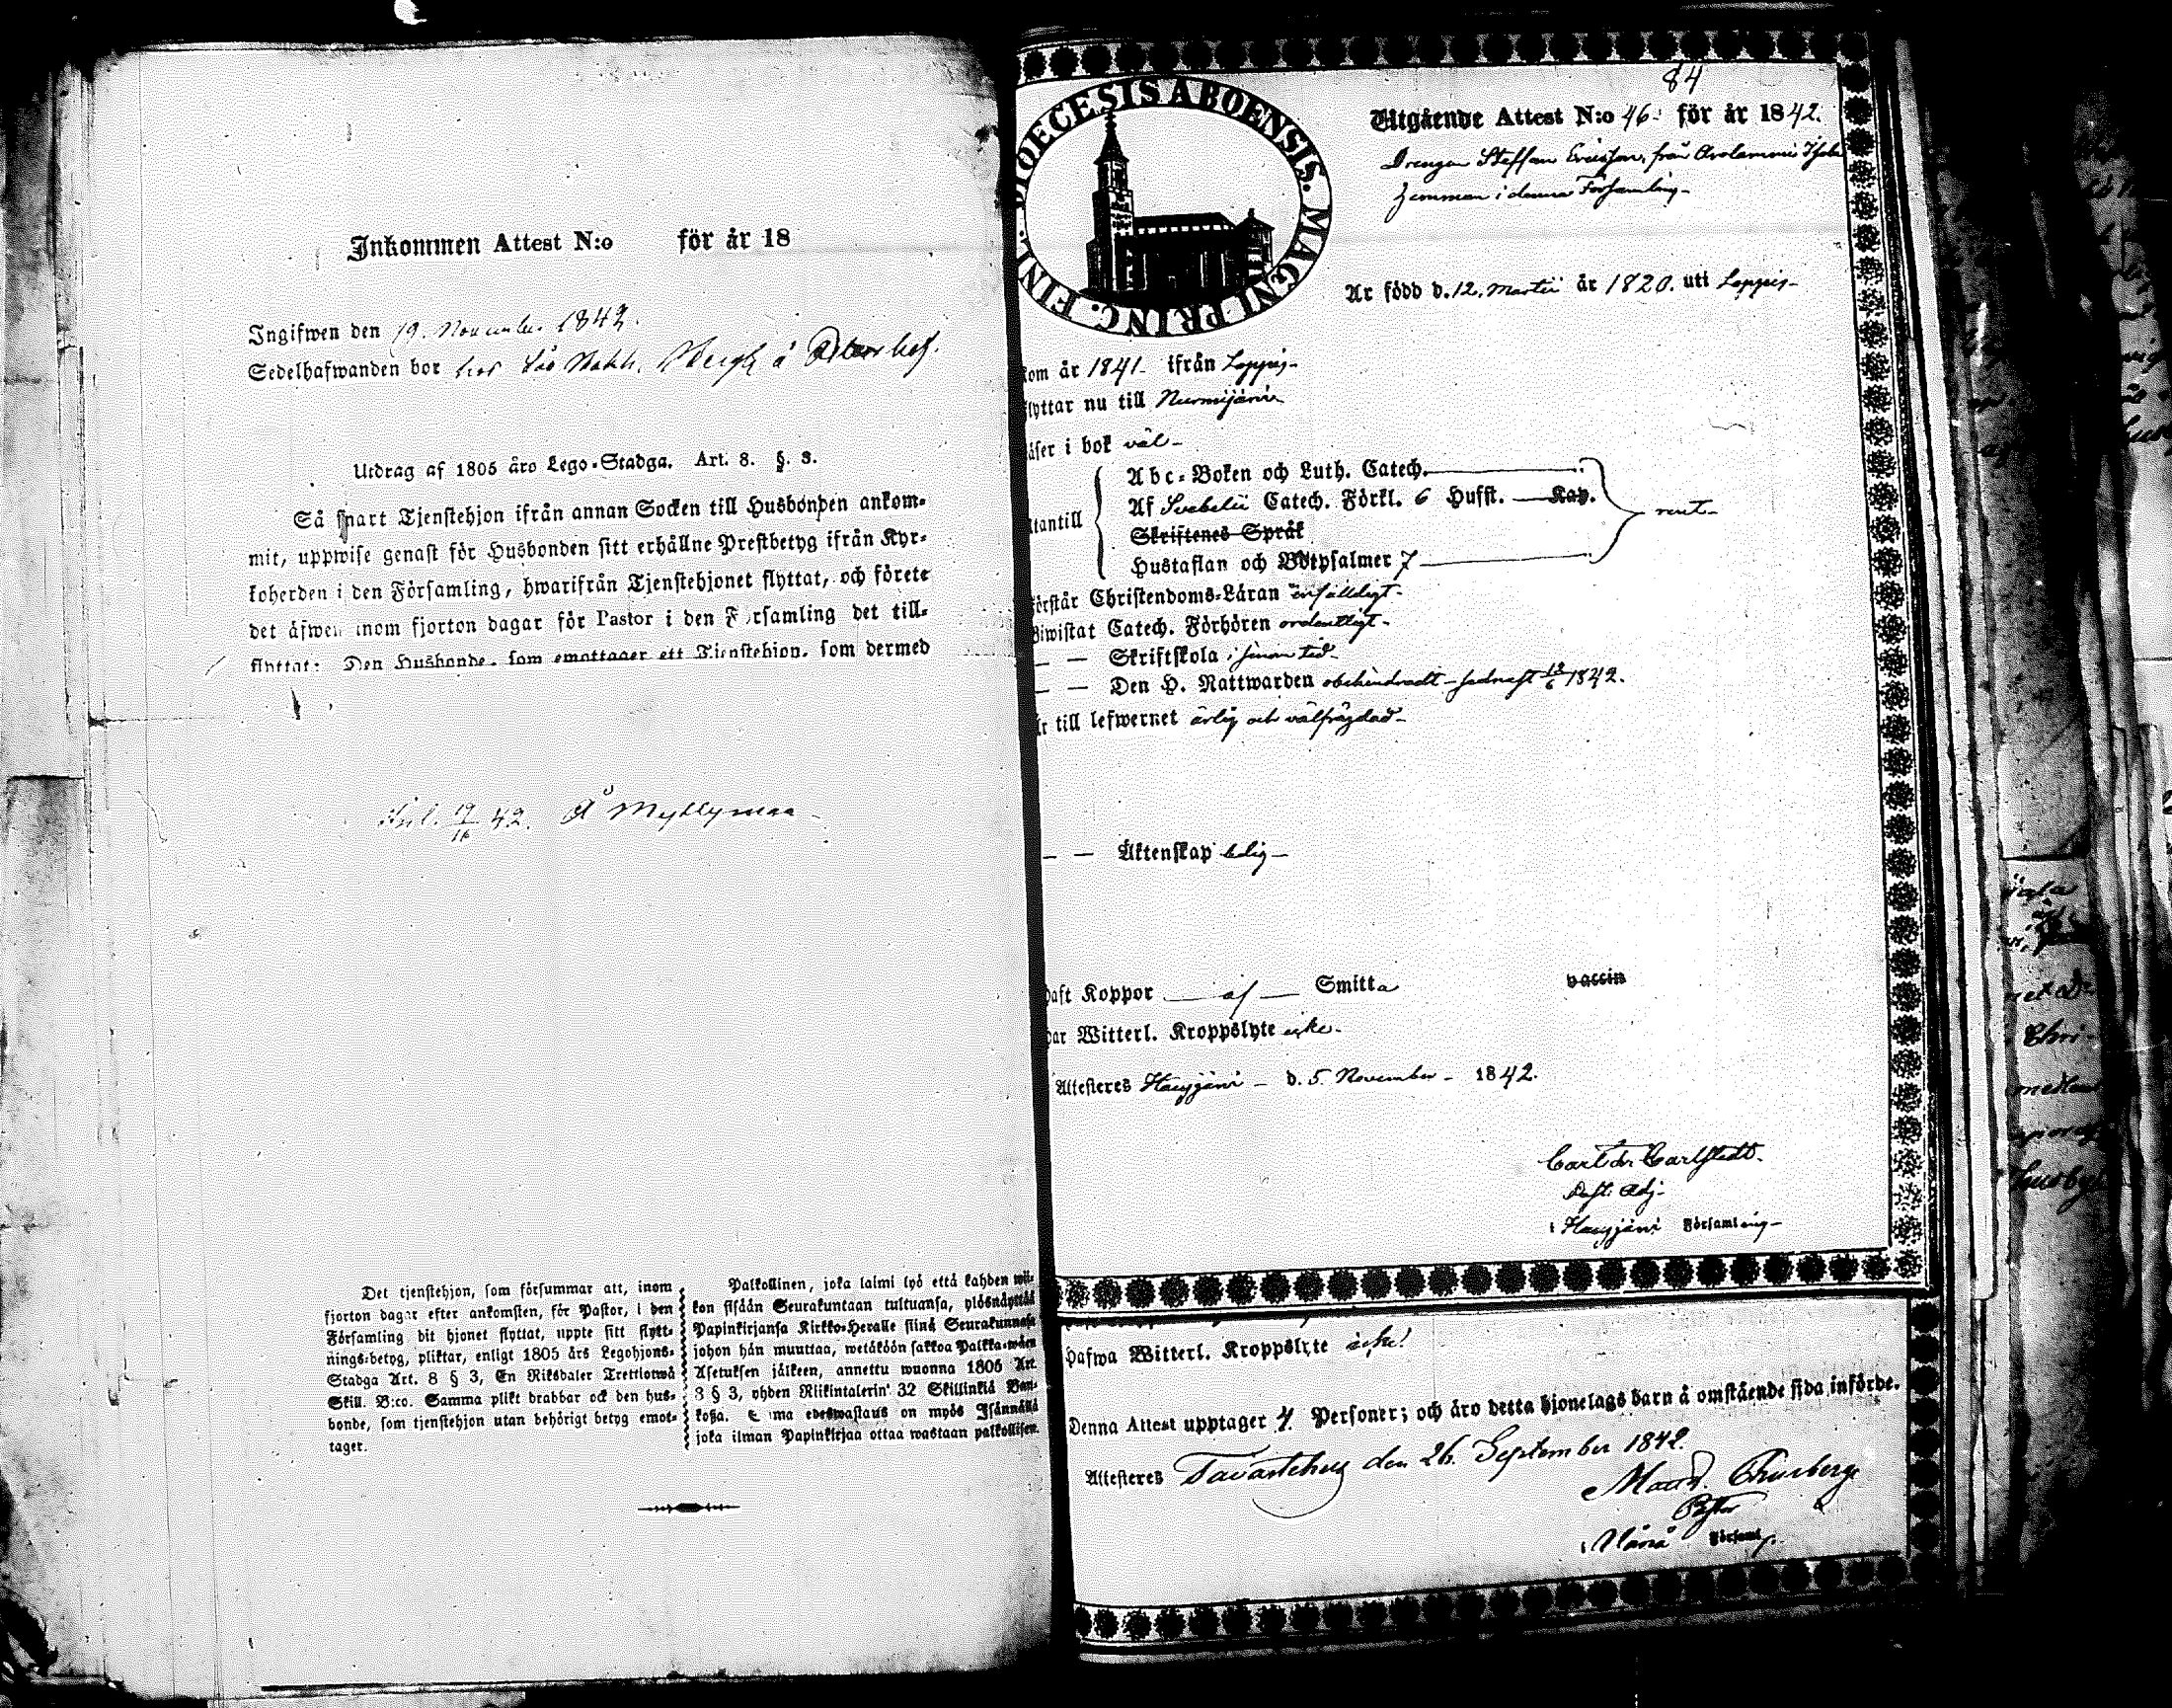 Inkommen Attest N:o för år 18
Ingifwen den 19. November 1842.
Sedelhafwanden bor hos å
Utdrag af 1805 års Lego-Stadga. Art. 8. §. 3.
Så snart Tjenstehjon ifrån annan Socken till Husbonden ankom-
mit, uppwise genast för Husbonden sitt erhållne Prestbetyg ifrån Kyr-
koherden i den Församling, hwarifrån Tjenstehjonet flyttat, och förete
det äfwen inom fjorton dagar för Pastor i den Församling det till-
flyttat: Den Husbonde, som emottager ett Tjenstehjon, som dermed
19/11 42. Å Myllymaa
Det tjenstehjon, som försummar att, inom
fjorton dagar efter ankomsten, för Pastor, i den
Församling dit hjonet flyttat, uppte sitt flytt-
nings-betyg, pliktar, enligt 1805 års Legohjons-
Stadga Art. 8 § 3, En Riksdaler Trettiotwå
Skill. B:co. Samma plikt drabbar ock den hus-
bonde, som tjenstehjon utan behörigt betyg emot-
tager.
Palkollinen, joka laimi lyö että kahden wii-
kon sisään Seurakuntaan tultuansa, ylösnäyttää
Papinkirjansa Kirkko-Heralle siinä Seurakunnasa
johon hän muuttaa, wetäköön sakkoa Palkka-wäen
Asetuksen jälkeen, annettu wuonna 1805 Art.
8 § 3, yhden Riikintalerin 32 Skillinkiä Ban-
koßa. Sama edeswastaus on myös Isännällä
joka ilman Papinkirjaa ottaa wastaan palkollisen.
84
DIOECESIS ABOENSIS. MAGNI PRINC. FINL.
Utgående Attest N:o 46. för år 1842.
Drengen Staffan Ericsson, från
hemman i denna Församling
Är född d. 12. Martii år 1820. uti Loppis
kom år 1841 ifrån Loppis
flyttar nu till Nurmijärvi
läser i bok väl
Utantill
Abc-Boken och Luth. Catech.
Af Svebelii Catech. Förkl. 6 Hufst. Kap.
Skriftenes Språk
Hustaflan och Botpsalmer 7
rent
Förstår Christendoms-Läran enfaldigt
Biwistat Catech. Förhören ordentligt
— — Skriftskola i sinom tid
— — Den H. Nattwarden obehindradt sednast 12/6 1842.
Är till lefwernet ärlig och välfrägdad
— — Äktenskap ledig
Haft Koppor af Smitta vaccin
Har Witterl. Kroppslyte icke.
Attesteres Hausjärvi d. 5. November 1842.
Carl Fr. Carlstedt.
Past. Adj.
i Hausjärvi Församling
Hafwa Witterl. Kroppslyte icke!
Denna Attest upptager 4 Personer; och äro detta hjonelags barn å omstående sida införde.
Attesteres Tavastehus den 26. September 1842.
i Wånå Församl.